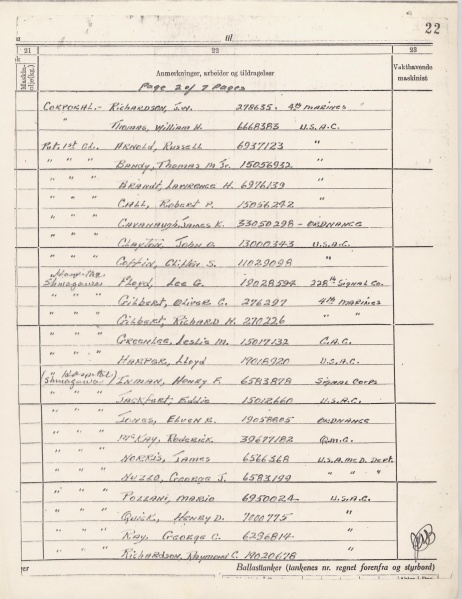 22
a til
21 22 23
k
Maskin-
olje(kg.)
Anmerkninger, arbeider og tildragelser
Vakthavende
maskinist
Page 2 of 7 Pages
CORPORAL.- RICHARDSON, J.W. 278635. 4th MARINES
" THOMAS, WILLIAM H. 6668383 U.S.A.C.
Pvt. 1st CL. ARNOLD, RUSSELL 6937123 "
" " " BANDY, THOMAS M Jr. 15056932 "
" " " BRANDT, LAWRENCE H. 6976139 "
" " " CALL, ROBERT P. 15056242 "
" " " CAVANAUGH, JAMES K. 33050298 - ORDNANCE
" " " CLAYTON, JOHN O. 13000343 U.S.A.C.
" " " COFFIN, CLIFTON S. 11029098 "
Shinagawa FLOYD, LEE G. 19028594 228th SIGNAL Co.
" " " GILBERT, OLIVER C. 276297 4th MARINES
" " " GILBERT, RICHARD H. 270226 " "
" " " GREENLEE, LESLIE M. 15017132 C.A.C.
" " " HARPER, LLOYD 19018920 U.S.A.C.
Shinagawa INMAN, HENRY F. 6583878 SIGNAL CORPS
" " " EDDIE 15012660 U.S.A.C.
" " " JONES, ELVEN R. 19058805 ORDNANCE
" " " McKAY, RODERICK 39677182 Q.M.C.
" " " NORRIS, JAMES 6566368 U.S.A. MED. DEPT.
" " " NUZZO, GEORGE J. 6583199 " " "
" " " POLLANI, MARIO 6950024 U.S.A.C.
" " " QUICK, HENRY D. 7000775 "
" " " RAY, GEORGE C. 6296814 "
" " " RICHARDSON, RAYMOND C. 19020678 "
ger Ballasttanker (tankenes nr. regnet forenfra og styrbord)